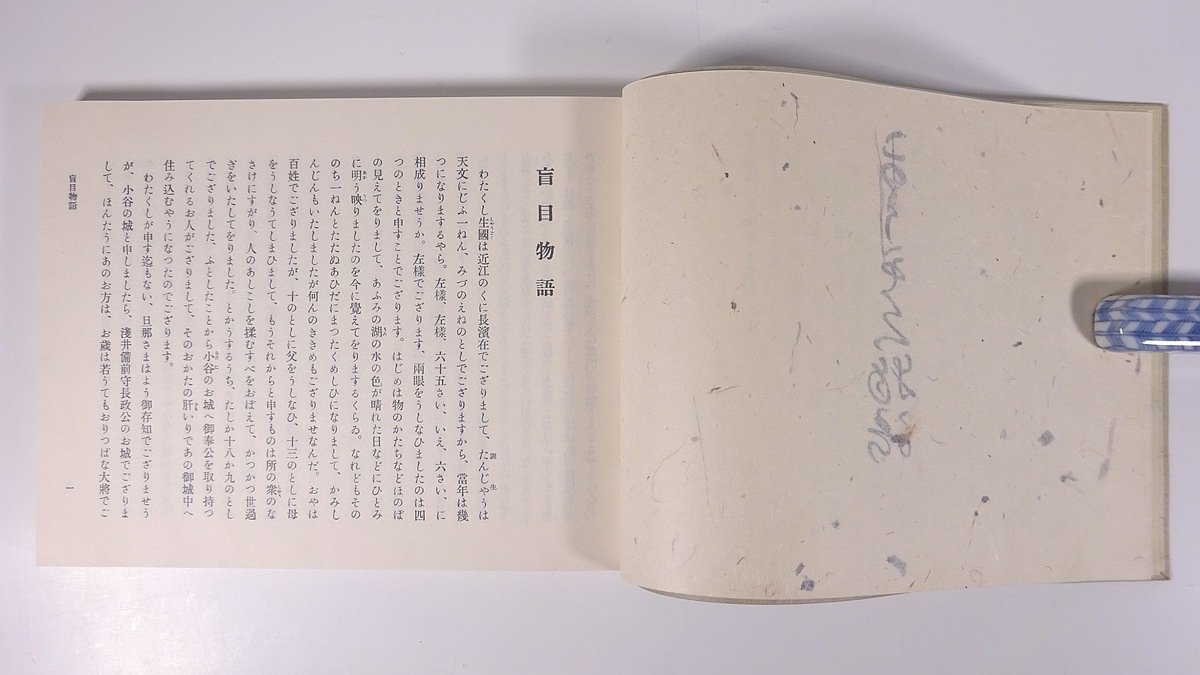 盲目物語
わたくし生國は近江のくに長濱在でござりまして、たんじやうは
天文にじふ一ねん、みづのえねのとしでござりますから、當年は幾
つになりまするやら。左樣、左樣、六十五さい、いえ、六さい、に
相成りませうか。左樣でござります、兩眼をうしなひましたのは四
つのときと申すことでござります。はじめは物のかたちなどほのぼ
の見えてをりまして、あふみの湖の水の色が晴れた日などにひとみ
に明う映りましたのを今に覺えてをりまするくらゐ。なれどもその
のち一ねんとたたぬあひだにまつたくめしひになりまして、かみし
んじんもいたしましたが何んのききめもござりませなんだ。おやは
百姓でござりましたが、十のとしに父をうしなひ、十三のとしに母
をうしなうてしまひまして、もうそれからと申すものは所の衆のな
さけにすがり、人のあしこしを揉むすべをおぼえて、かつかつ世過
ぎをいたしてをりました。とかうするうち、たしか十八か九のとし
でござりました、ふとしたことから小谷のお城へ御奉公を取り持つ
てくれるお人がござりまして、そのおかたの肝いりであの御城中へ
住み込むやうになつたのでござります。
わたくしが申す迄もない、旦那さまはよう御存知でござりませう
が、小谷の城と申しましたら、淺井備前守長政公のお城でござりま
して、ほんたうにあのお方は、お歲は若うてもおりつぱな大將でご
盲目物語
一